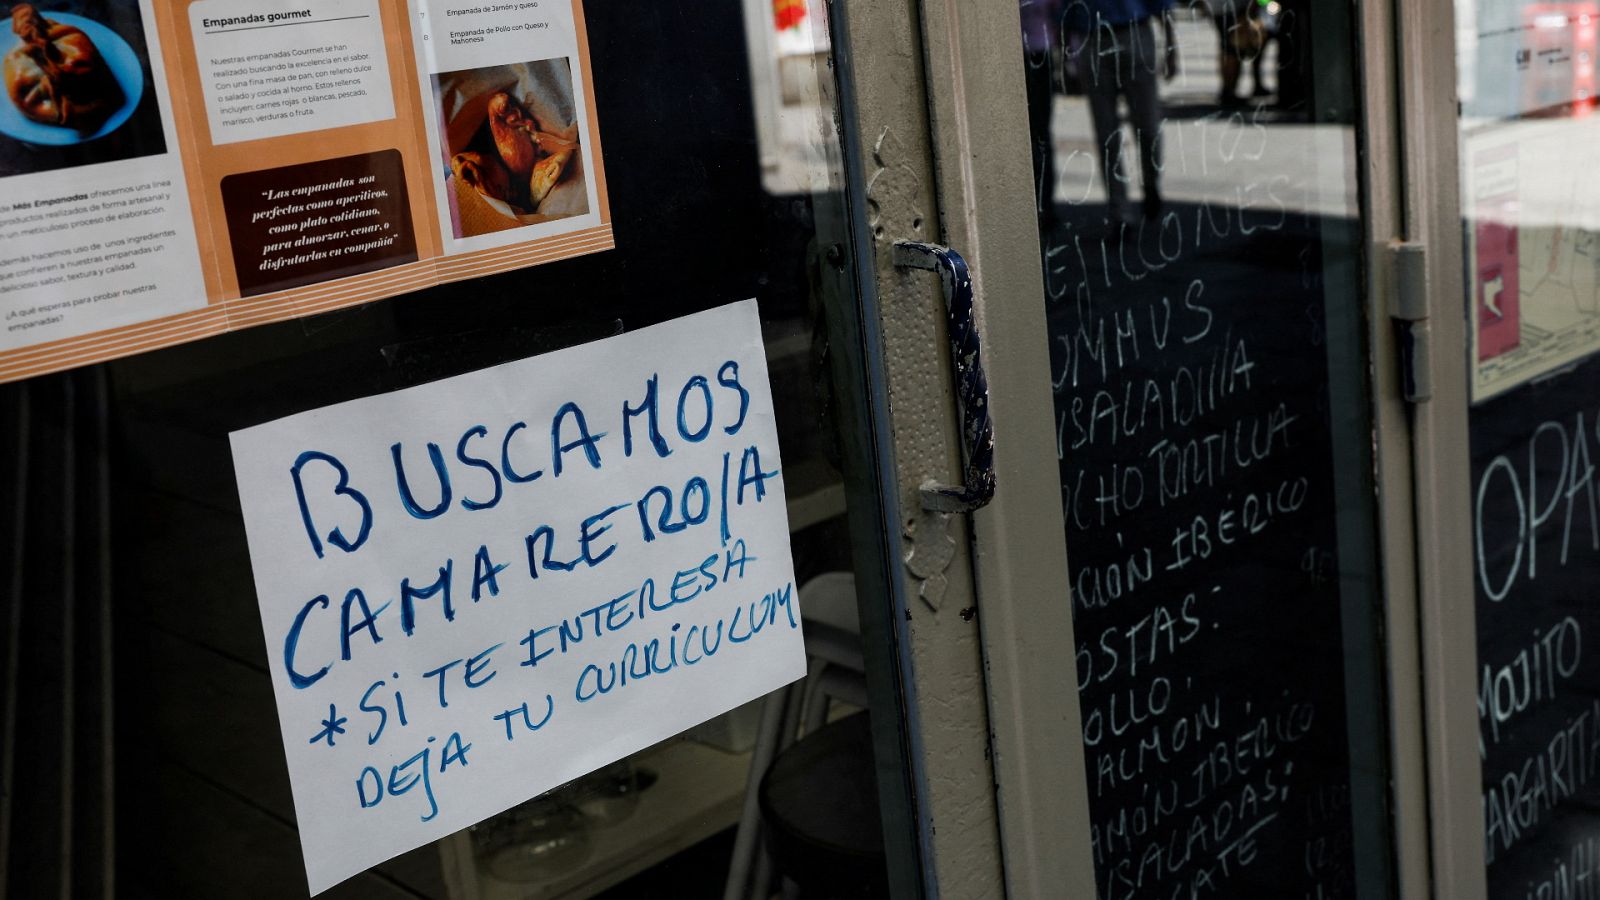 Empanadas gourmet
Nuestras empanadas Gourmet se han
realizado buscando la excelencia en el sabor.
Con una fina masa de pan, con relleno dulce
o salado y cocida al horno. Estos rellenos
incluyen: carnes rojas o blancas, pescado,
marisco, verduras o fruta.
“Las empanadas son
perfectas como aperitivos,
como plato cotidiano,
para almorzar, cenar, o
disfrutarlas en compañía”
7 Empanada de Jamón y queso
8 Empanada de Pollo con Queso y
Mahonesa
de Más Empanadas ofrecemos una línea
productos realizados de forma artesanal y
n un meticuloso proceso de elaboración.
demás hacemos uso de unos ingredientes
que confieren a nuestras empanadas un
delicioso sabor, textura y calidad.
¿A qué esperas para probar nuestras
empanadas?
BUSCAMOS
CAMARERO/A
*Si TE INTERESA
DEJA TU CURRICULUM
EJILLONES
UMMUS
SALADILLA
CHO TORTILLA
CIÓN IBÉRICO
OSTAS:
OLLO.
ALMÓN.
AMÓN IBÉRICO
SALADAS:
CATE
OPAS
MOJITO
MARGARITA